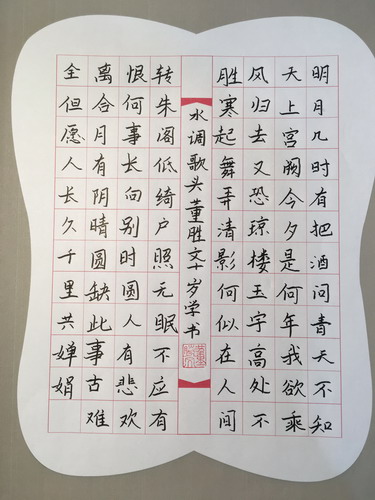 明月几时有把酒问青天不知
天上宫阙今夕是何年我欲乘
风归去又恐琼楼玉宇高处不
胜寒起舞弄清影何似在人间
水调歌头董胜文十岁学书
转朱阁低绮户照无眠不应有
恨何事长向别时圆人有悲欢
离合月有阴晴圆缺此事古难
全但愿人长久千里共婵娟